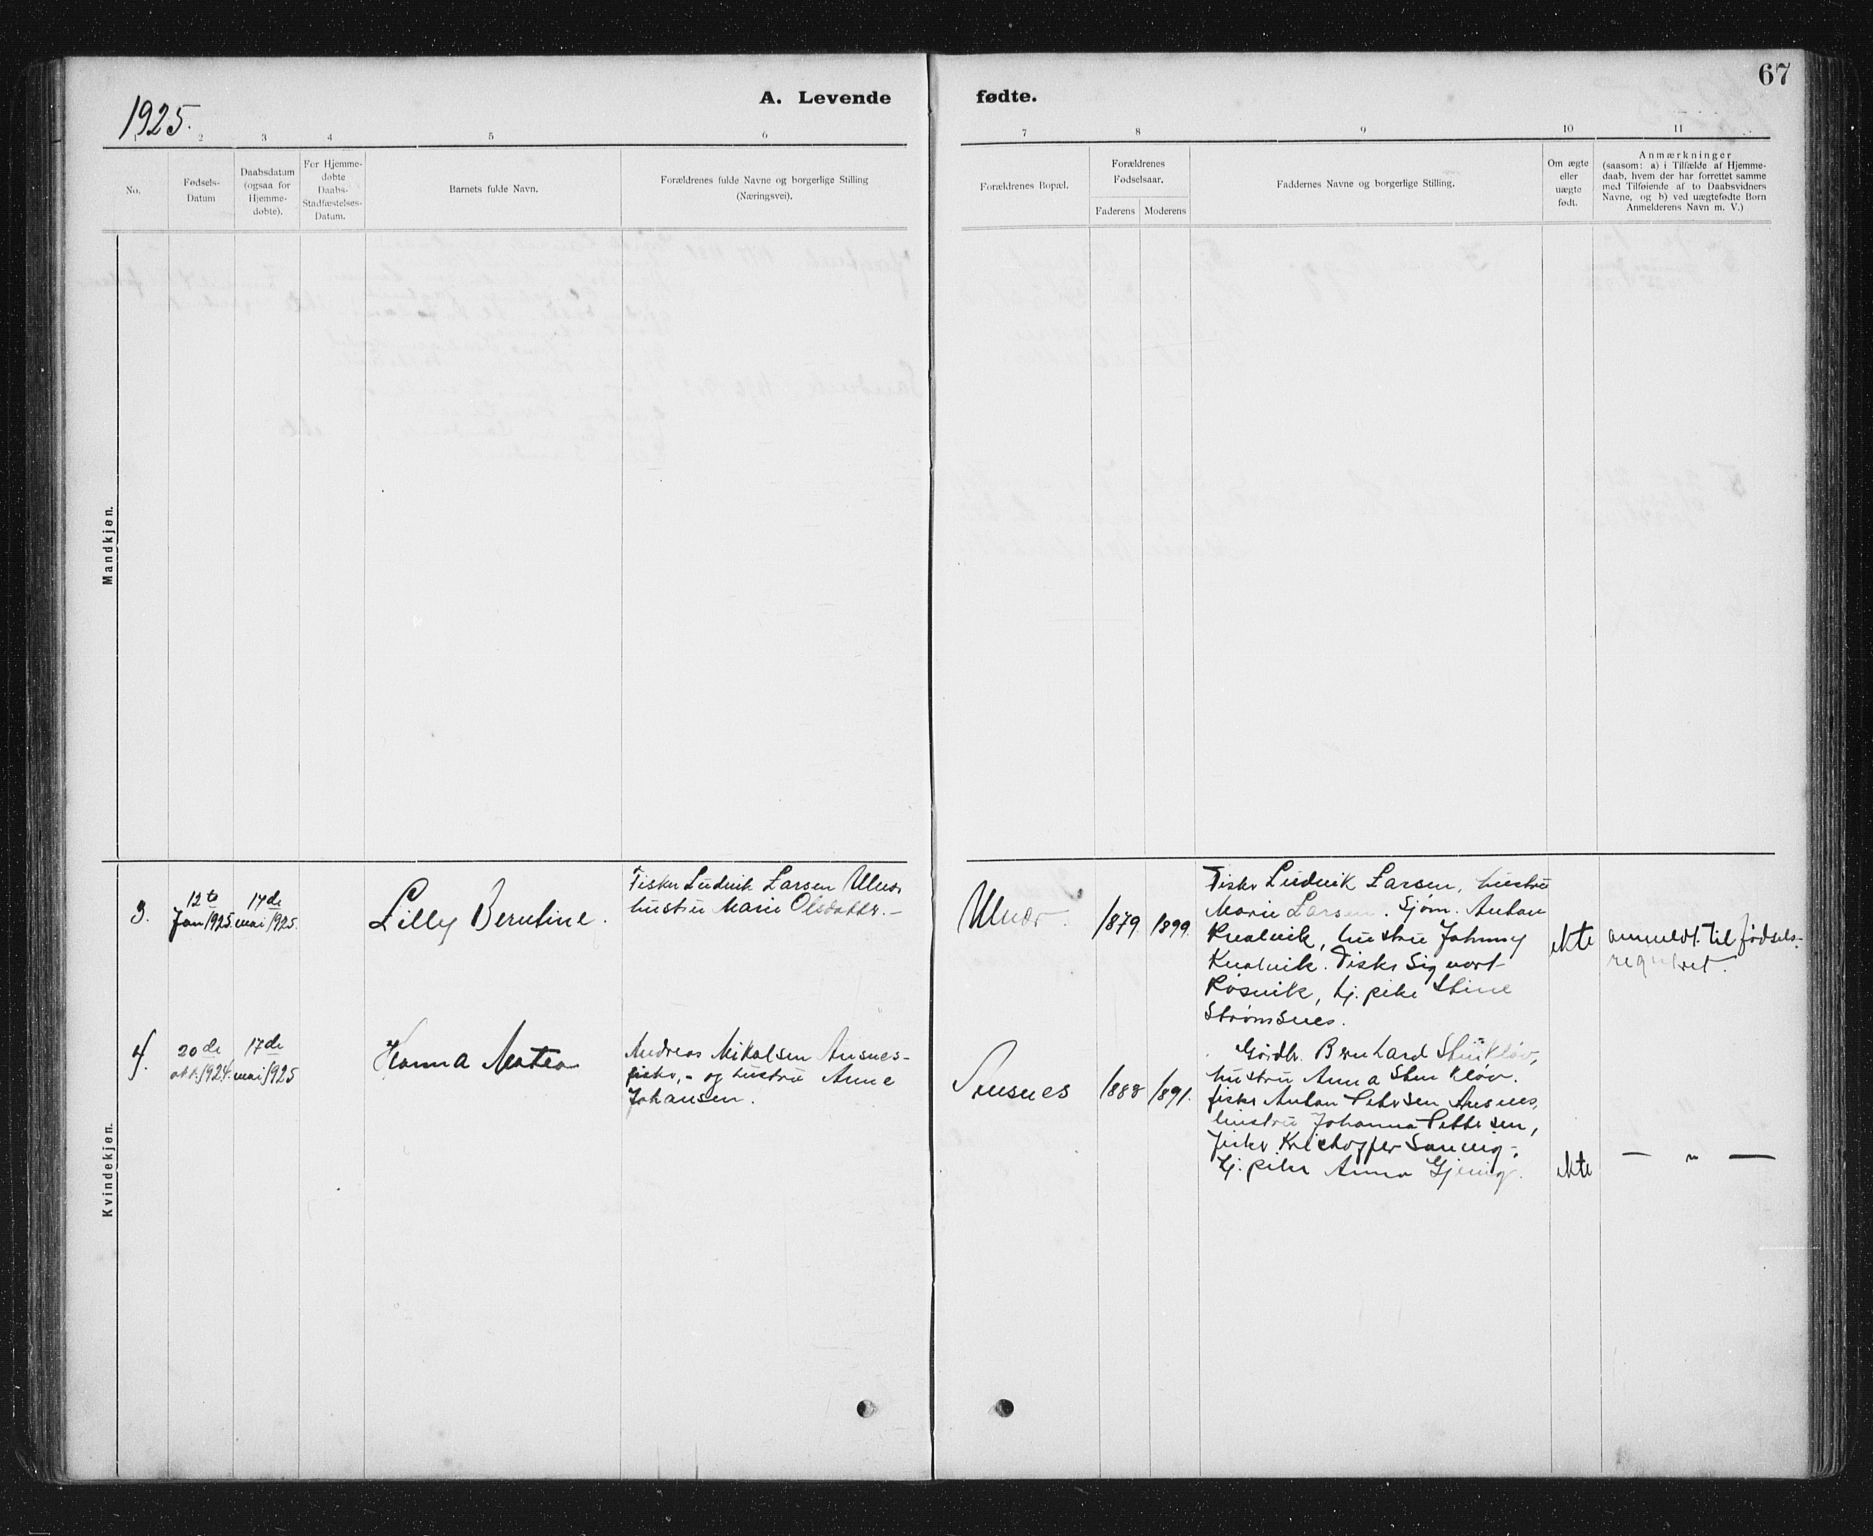 1925.
A. Levende fødte.
67
1 2 3 4 5 6 7 8 9 10 11
No.
Fødsels-
Datum
Daabsdatum
(ogsaa for
Hjemme-
døbte).
For Hjemme-
døbte
Daabs-
Stadfæstelses-
Datum.
Barnets fulde Navn.
Forældrenes fulde Navne og borgerlige Stilling
(Næringsvei).
Forældrenes Bopæl.
Forældrenes
Fødselsaar.
Faderens Moderens
Faddernes Navne og borgerlige Stilling.
Om ægte
eller
uægte
født.
Anmærkninger
(saasom: a) i Tilfælde af Hjemme-
daab, hvem der har forrettet samme
med Tilføiende af to Daabsvidners
Navne, og b) ved uægtefødte Børn
Anmelderens Navn m. V.)
Mandkjøn.
Kvindekjøn.
3.
12te
Jan 1925.
17de
mai 1925.
Lilly Berntine.
Fisker Ludvik Larsen Ulvær
hustru Marie Olsdatter.
Ulvær.
1879. 1899.
Fisker Ludvik Larsen, hustru
Marie Larsen. Sjøm. Anton
Kvalvik, hustru Johnny
Kvalvik. Fisker Sigvart
Røsvik, hj. pike Stine
Strømsnes.
ekte
anmeldt til fødsels-
registret.
4.
20de
okt. 1924.
17de
mai 1925
Hanna Matea
Andreas Mikalsen Ansnes-
fisker, - og hustru Anne
Johansen.
Ansnes
1888 1891.
Gårdbr. Bernhard Stenkløv,
hustru Anna Stenkløv.
fisker Anton Petersen Ansnes,
hustru Johanna Pettersen,
fisker Kristoffer
hj. pike Anna
ekte
— " —